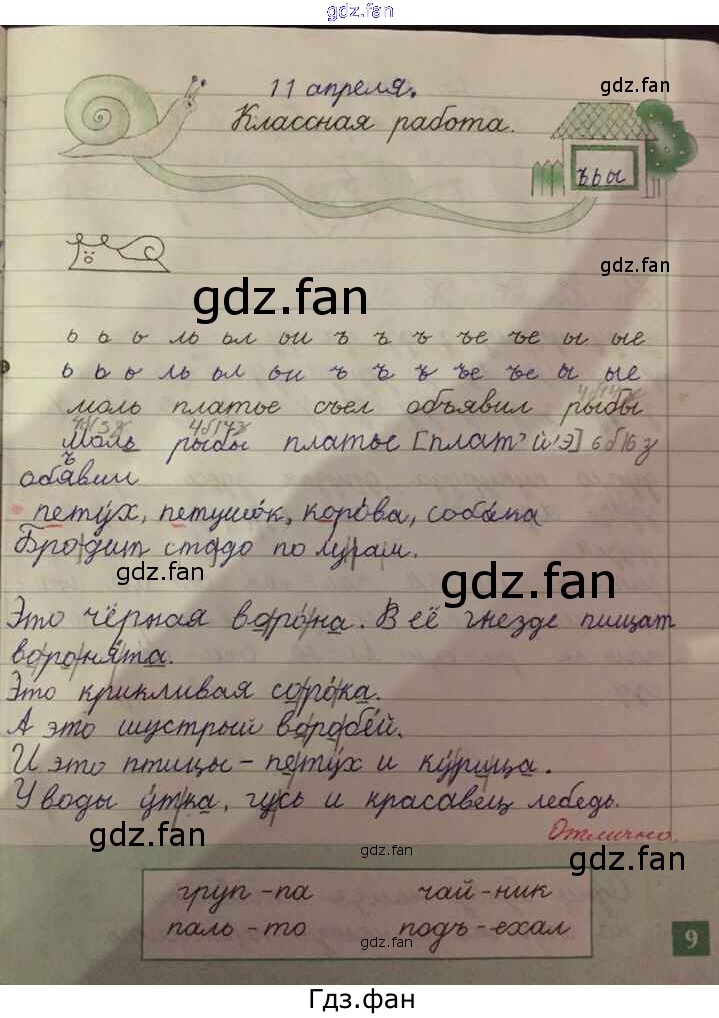 gdz.fan
11 апреля.
gdz.fan
Классная работа.
ъ ь ы
gdz.fan
gdz.fan
ь ь ь ль ьл ьи ъ ъ ъ ъе ъе ы ые
ь ь ь ль ьл ьи ъ ъ ъ ъе ъе ы ые
4б14з
моль платье съел объявил рыбы
4б3з 4б14з
Моль рыбы платье [плат'й'э] 6б6з
обявил
ъ
петух, петушок, корова, собака
Бродит стадо по лугам.
gdz.fan
gdz.fan
Это чёрная ворона. В её гнезде пищат
воронята.
Это крикливая сорока.
А это шустрый воробей.
И это птицы - петух и курица.
У воды утка, гусь и красавец лебедь.
Отлично.
gdz.fan
gdz.fan
gdz.fan
груп - па чай - ник
паль - то подъ - ехал
gdz.fan
9
Гдз.фан